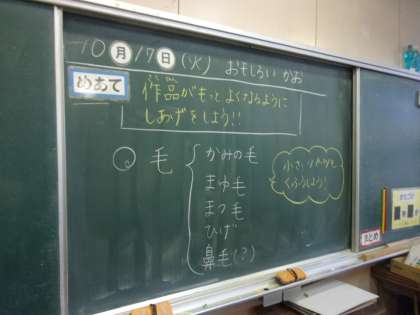 10月17日(火) おもしろい かお
めあて
作品がもっとよくなるように
しあげをしよう!!
毛
かみの毛
まゆ毛
まつ毛
ひげ
鼻毛(?)
小さい
くふうしよう!
まとめ